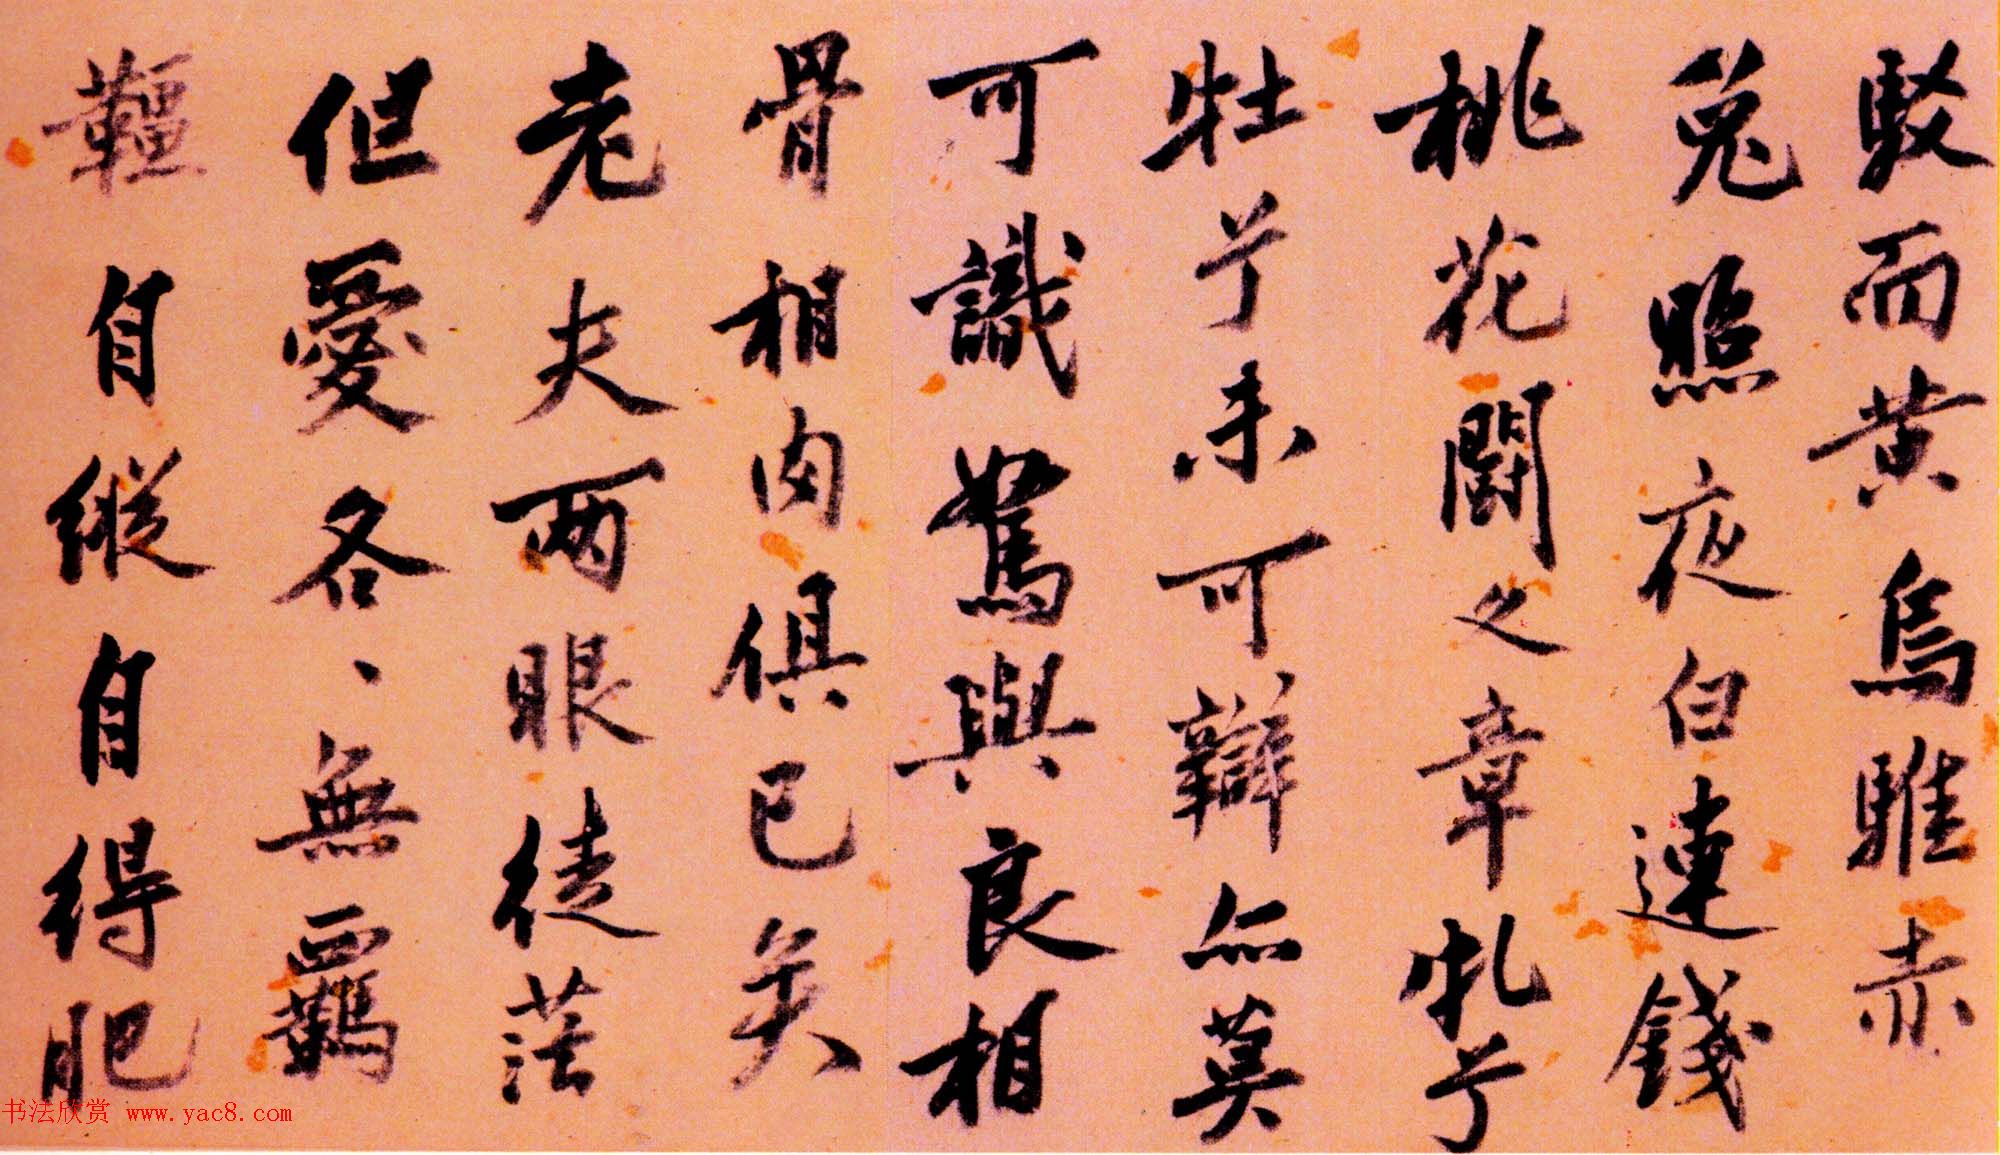 駁而黄烏騅赤
兔照夜白連錢
桃花闘之章牝兮
牡兮未可辯亦莫
可識駑與良相
骨相肉俱已矣
老夫两眼徒茫
但愛各、無羈
韁自縱自得肥
书法欣赏 www.yac8.com